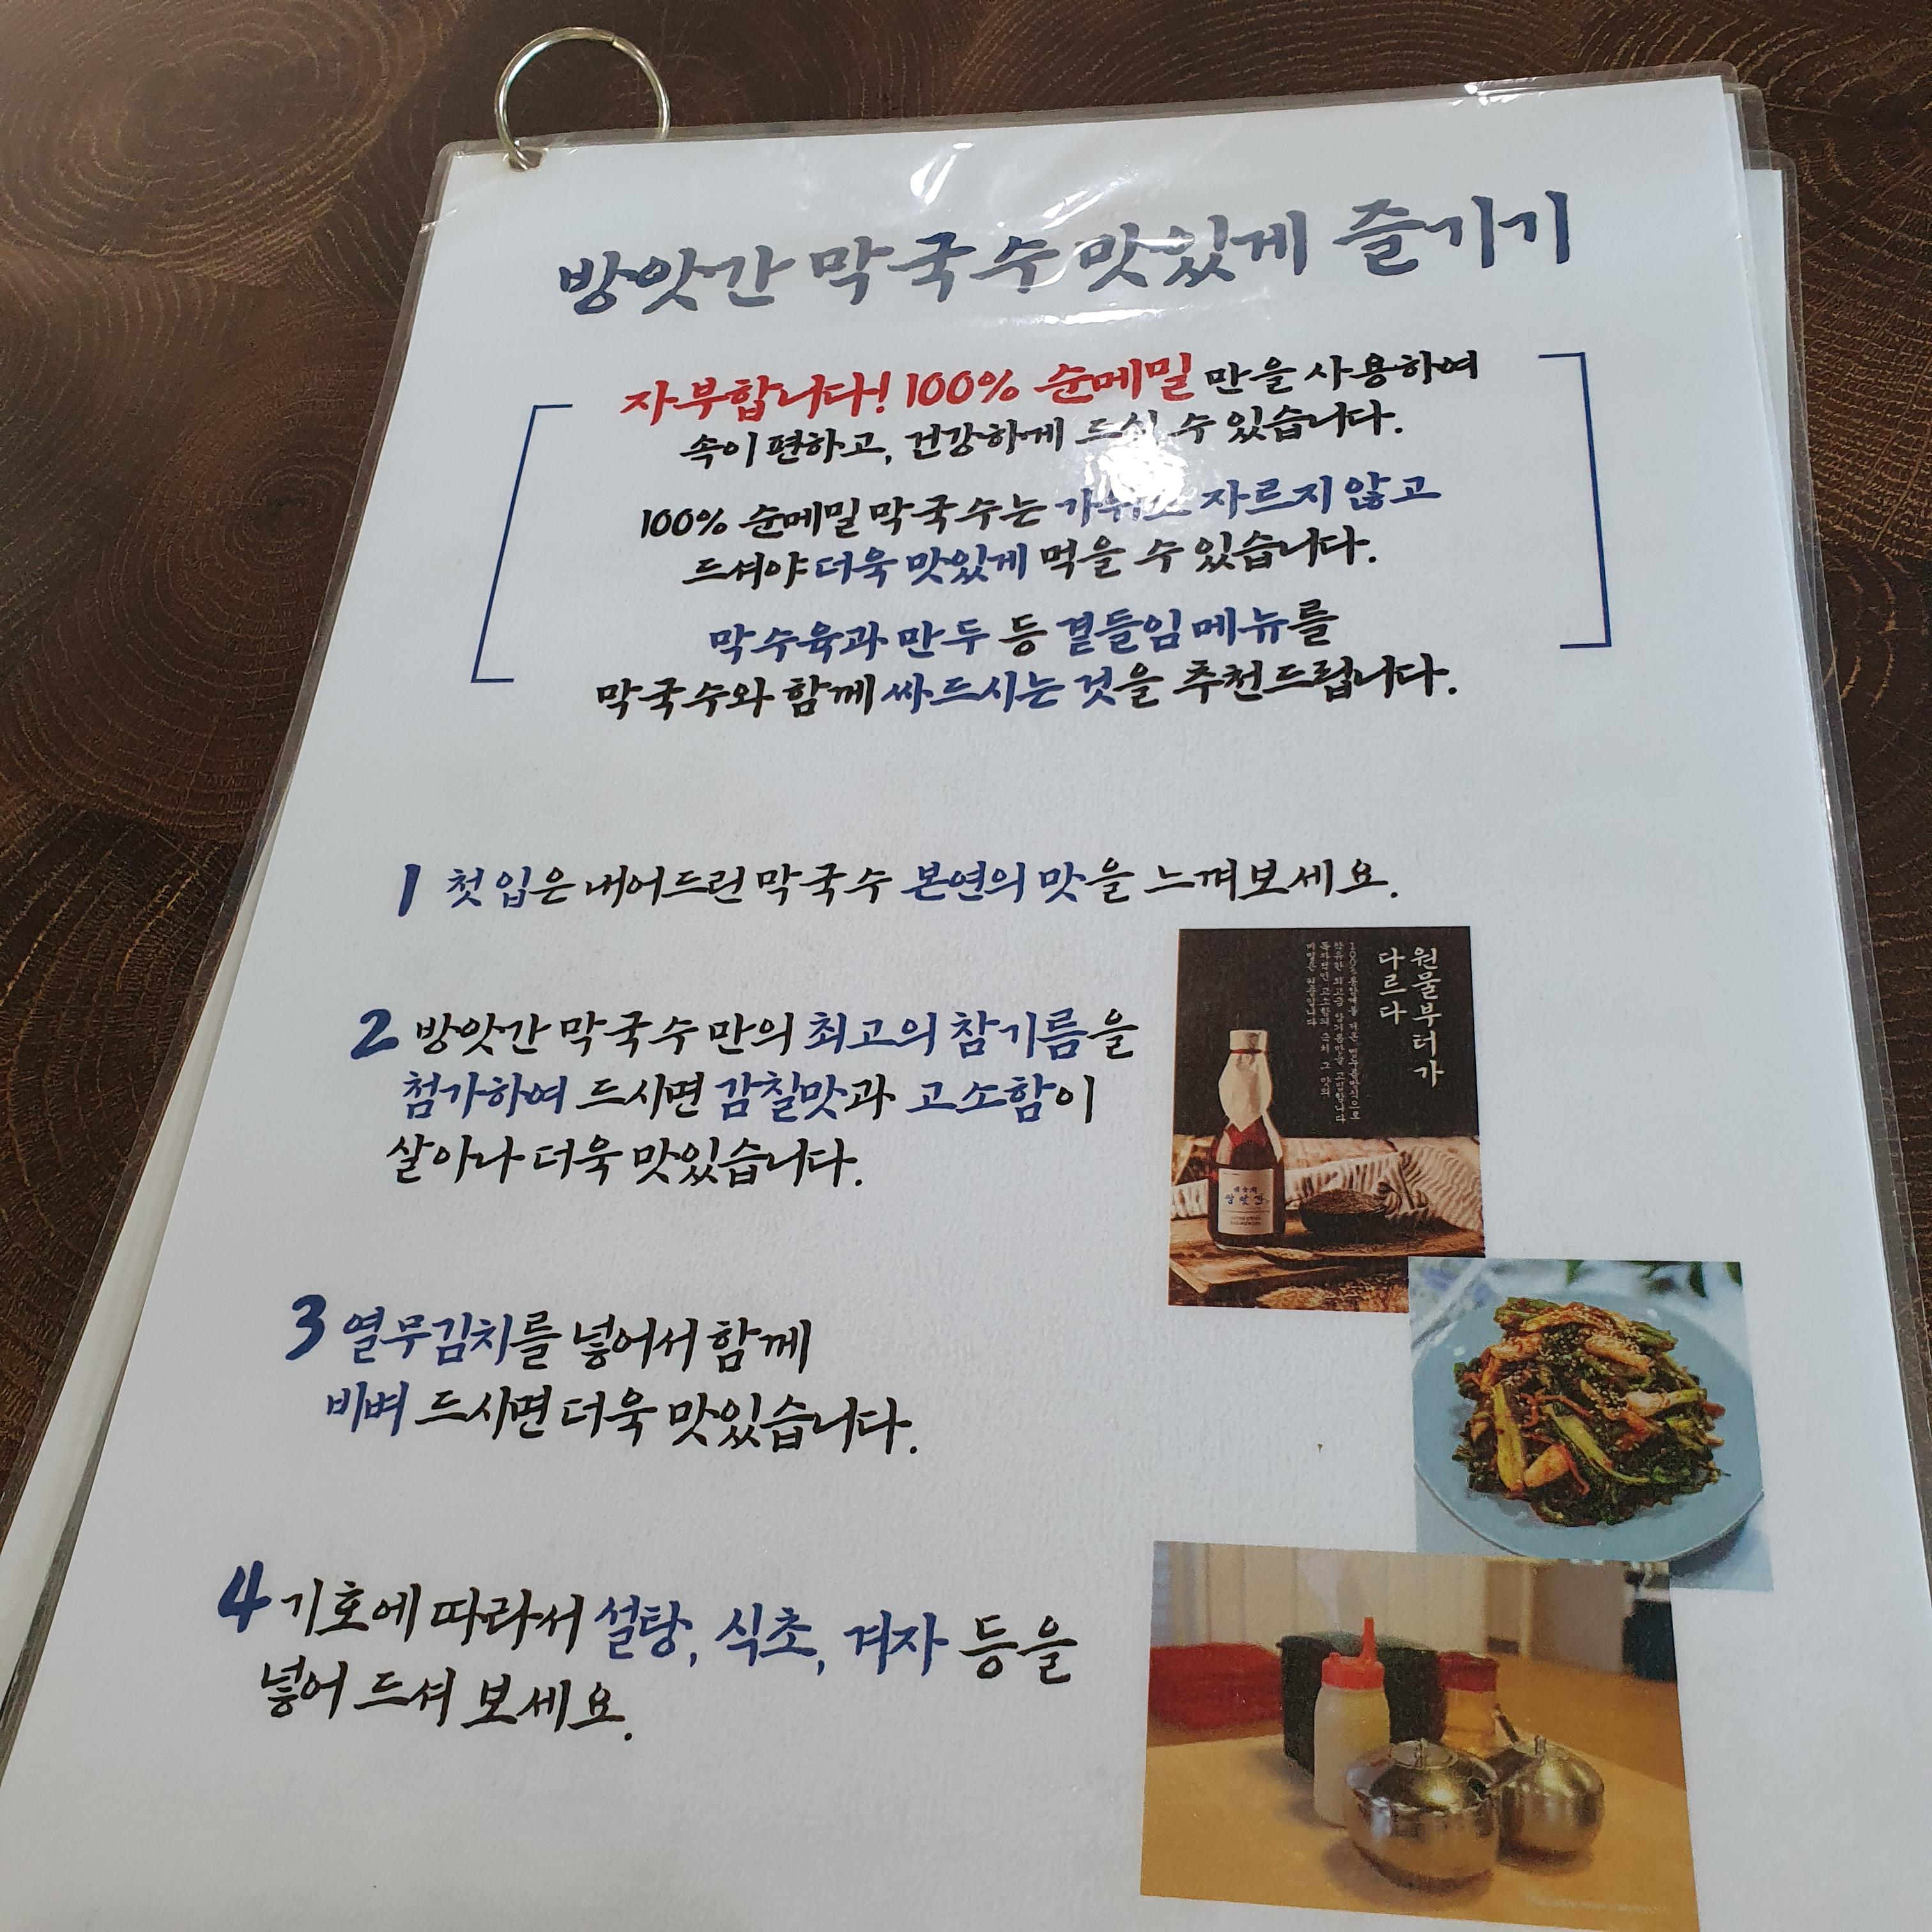 방앗간 막국수 맛있게 즐기기
자부합니다! 100% 순메밀 만을 사용하여
속이 편하고, 건강하게 드실 수 있습니다.
100% 순메밀 막국수는 가위로 자르지 않고
드셔야 더욱 맛있게 먹을 수 있습니다.
막수육과 만두 등 곁들임 메뉴를
막국수와 함께 싸 드시는 것을 추천드립니다.
1 첫 입은 내어드린 막국수 본연의 맛을 느껴보세요.
원물부터가
다르다
2 방앗간 막국수 만의 최고의 참기름을
첨가하여 드시면 감칠맛과 고소함이
살아나 더욱 맛있습니다.
3 열무김치를 넣어서 함께
비벼 드시면 더욱 맛있습니다.
4 기호에 따라서 설탕, 식초, 겨자 등을
넣어 드셔 보세요.